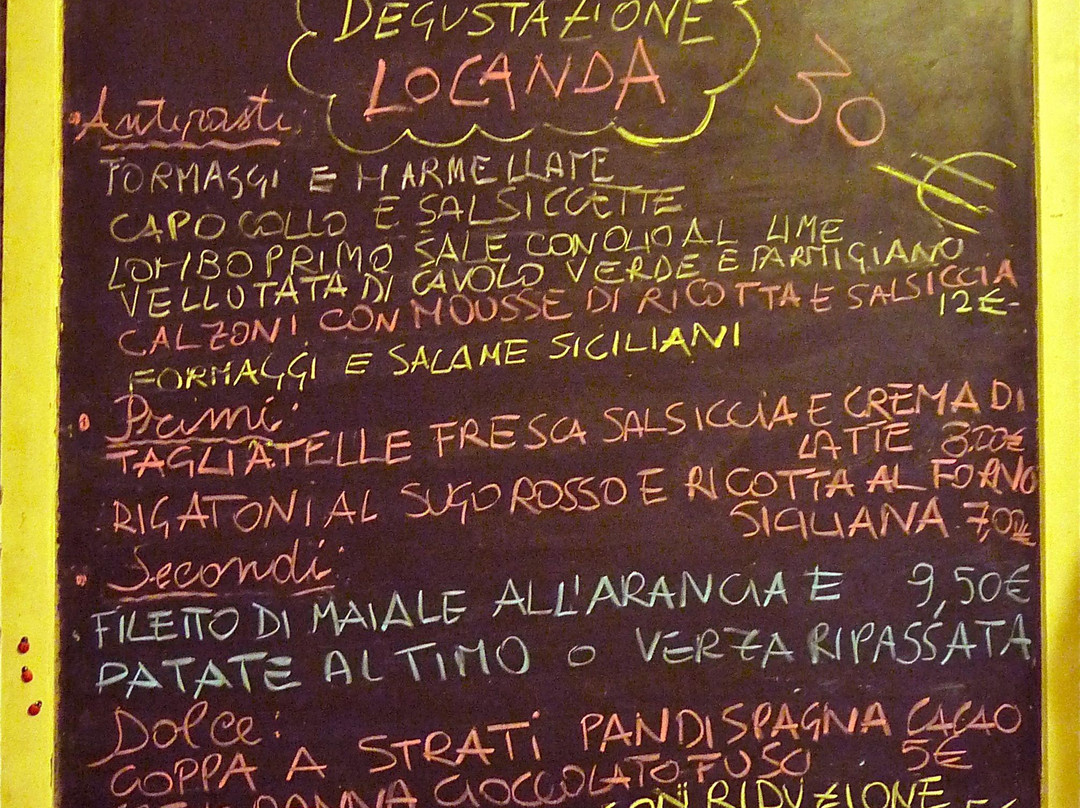 DEGUSTAZIONE
LOCANDA
30 €
Antipasti:
FORMAGGI E MARMELLATE
CAPOCOLLO E SALSICCETTE
LOMBO PRIMO SALE CON OLIO AL LIME
VELLUTATA DI CAVOLO VERDE E PARMIGIANO
CALZONI CON MOUSSE DI RICOTTA E SALSICCIA
12€
FORMAGGI E SALAME SICILIANI
Primi:
TAGLIATELLE FRESCA SALSICCIA E CREMA DI
LATTE 8,00€
RIGATONI AL SUGO ROSSO E RICOTTA AL FORNO
SICILIANA 7,00€
Secondi:
FILETTO DI MAIALE ALL'ARANCIA E 9,50€
PATATE AL TIMO O VERZA RIPASSATA
Dolce:
COPPA A STRATI PANDISPAGNA CACAO
PANNA CIOCCOLATO FUSO 5€
CON RIDUZIONE